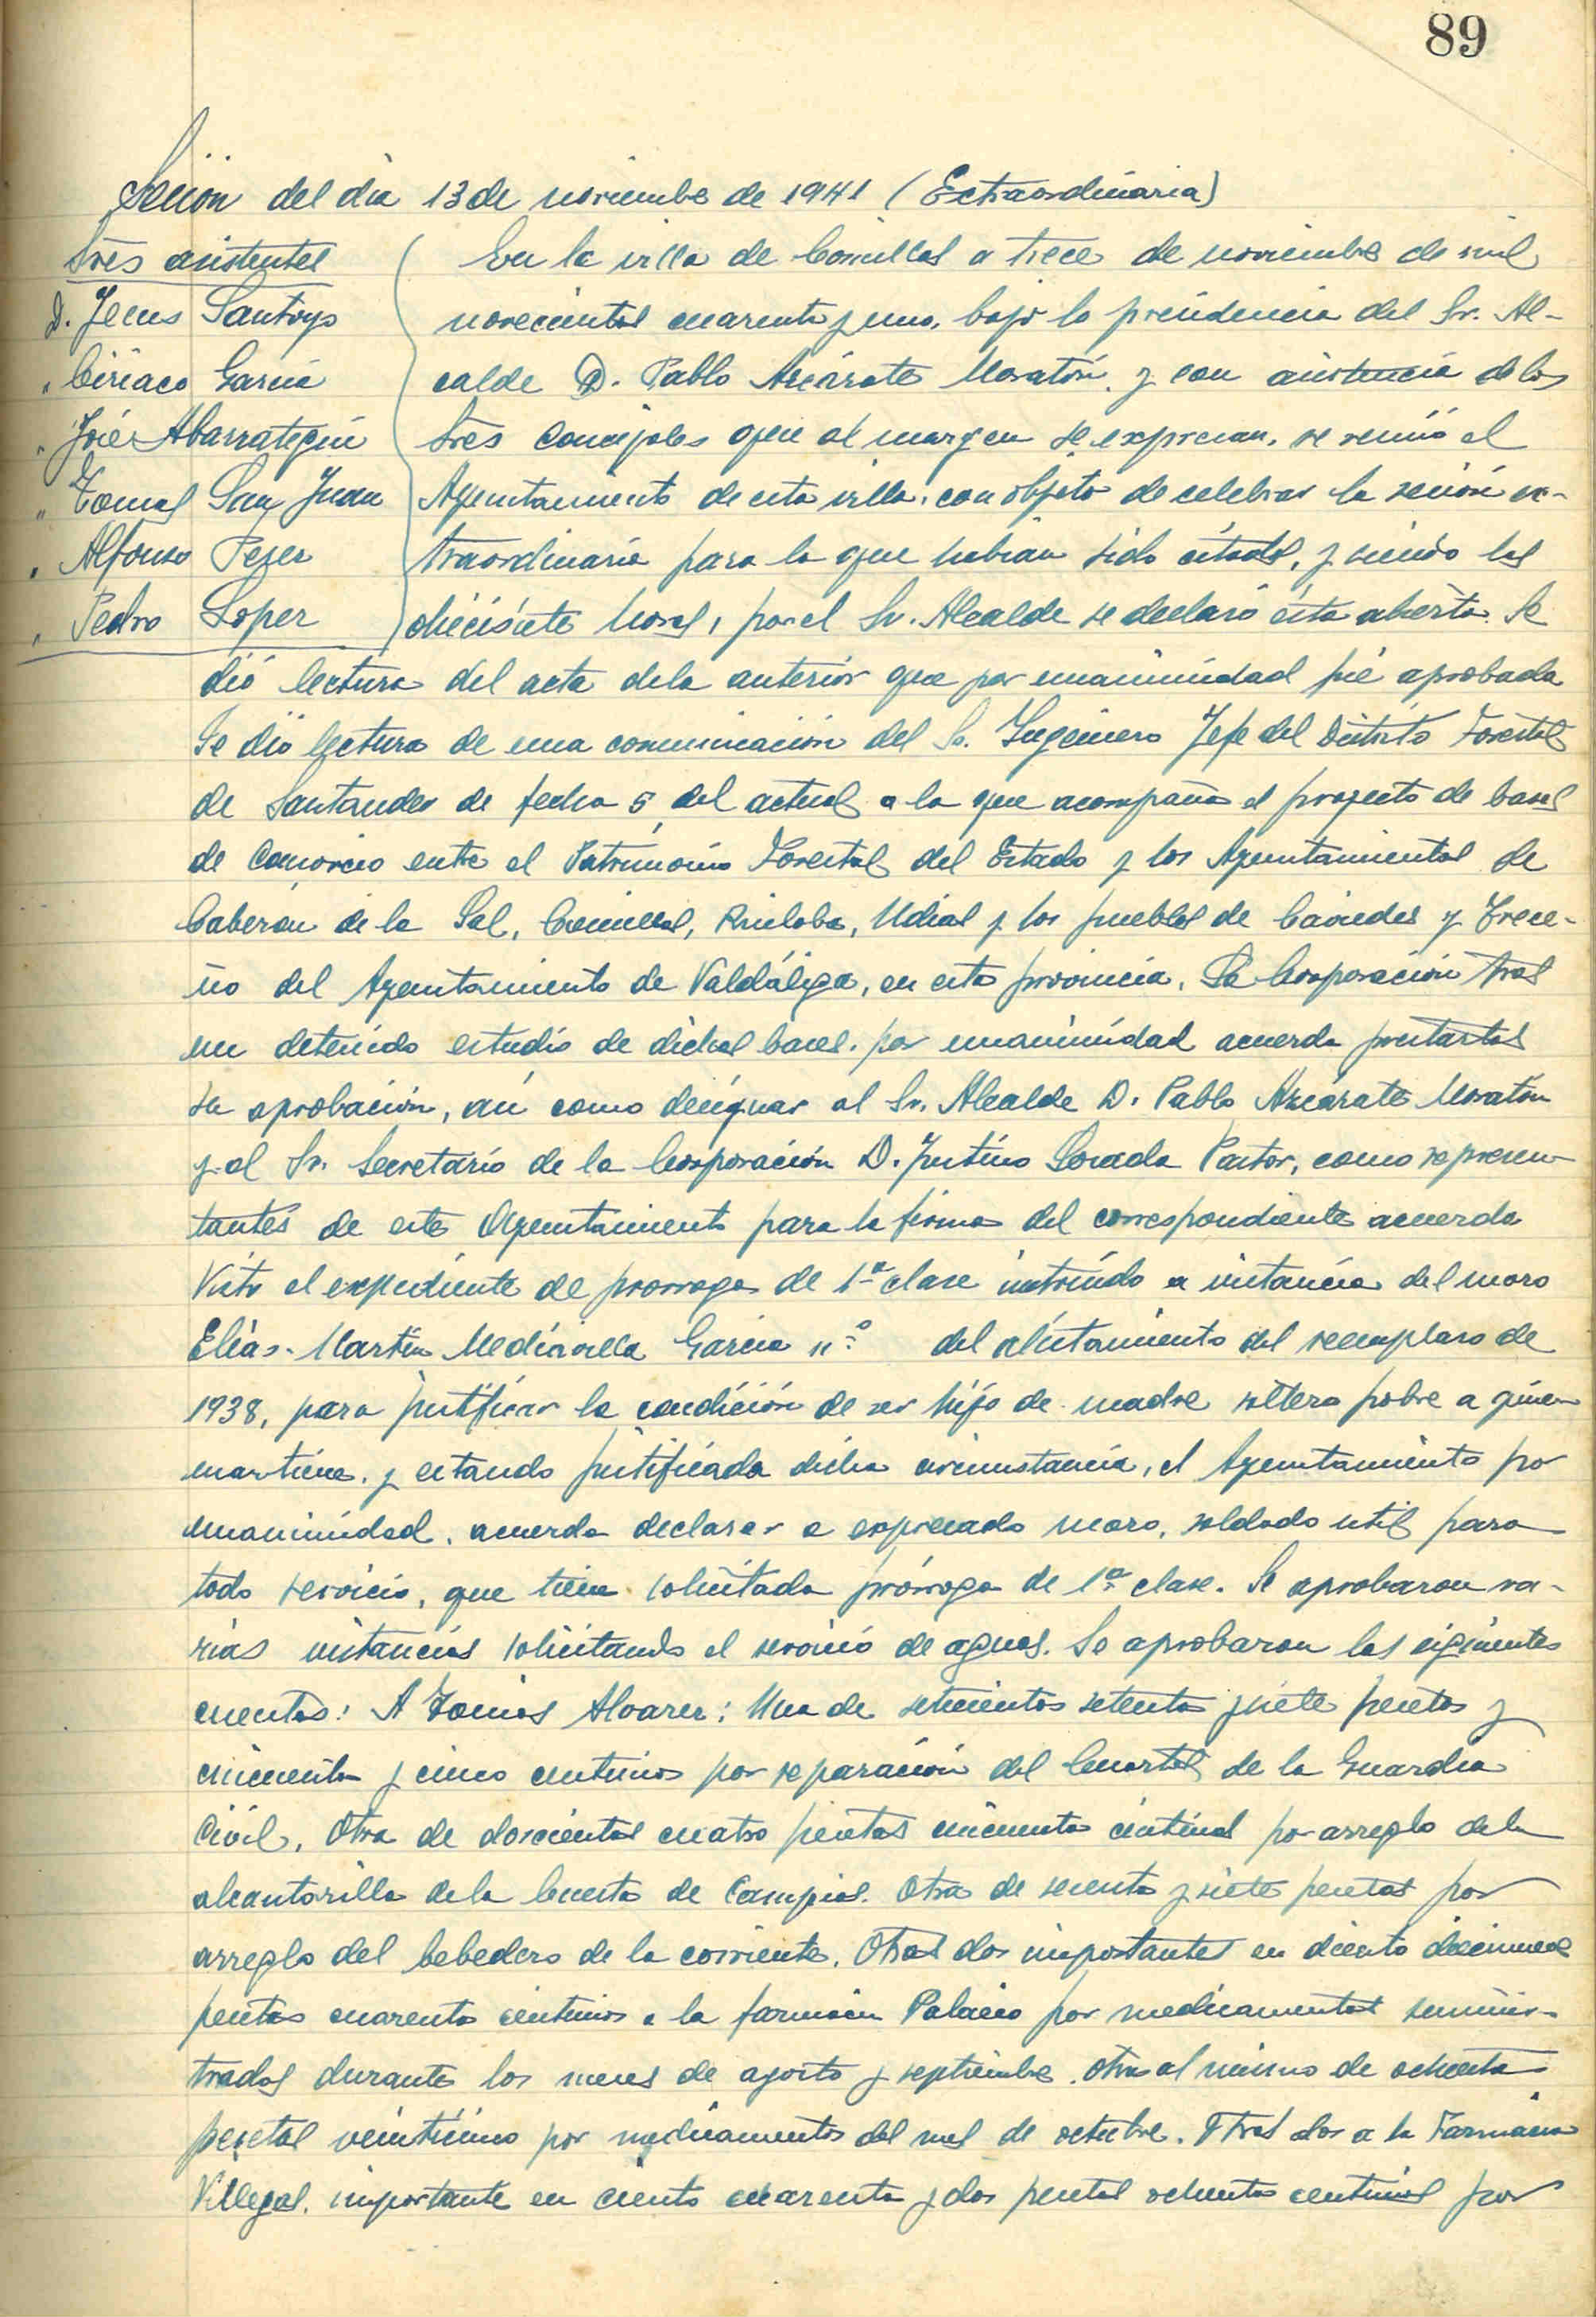 89
Sesión del día 13 de noviembre de 1941 (Extraordinaria)
Sres asistentes
D. Jesus Santoyo
" Ciriaco García
" José Abarrategui
" Tomas San Juan
" Alfonso Perez
" Pedro Lopez
En la villa de Comillas a trece de noviembre de mil
novecientos cuarenta y uno, bajo la presidencia del Sr. Al-
calde D. Pablo Azcárate Moratón, y con asistencia de los
Sres Concejales que al margen se expresan, se reunió el
Ayuntamiento de esta villa, con objeto de celebrar la sesión ex-
traordinaria para la que habian sido citados, y siendo las
diecisiete horas, por el Sr. Alcalde se declaró ésta abierta. Se
dió lectura del acta de la anterior que por unanimidad fué aprobada
Se dió lectura de una comunicación del Sr. Ingeniero Jefe del Distrito Forestal
de Santander de fecha 5 del actual a la que acompaña el proyecto de bases
de Consorcio entre el Patrimonio Forestal del Estado y los Ayuntamientos de
Cabezón de la Sal, Comillas, Ruiloba, Udias y los pueblos de Caviedes y Trece-
ño del Ayuntamiento de Valdáliga, en esta provincia. La Corporación tras
un detenido estudio de dichas bases, por unanimidad acuerda prestarlas
su aprobación, así como designar al Sr. Alcalde D. Pablo Azcárate Moratón
y al Sr. Secretario de la Corporación D. Justino Losada Pastor, como represen-
tantes de este Ayuntamiento para la firma del correspondiente acuerdo
Visto el expediente de prorroga de 1ª clase instruido a instancia del mozo
Elías-Martín Mediavilla García nº del alistamiento del reemplazo de
1938, para justificar la condición de ser hijo de madre soltera pobre a quien
mantiene, y estando justificada dicha circunstancia, el Ayuntamiento por
unanimidad, acuerda declarar a expresado mozo, soldado util para
todo servicio, que tiene solicitada prórroga de 1ª clase. Se aprobaron va-
rias instancias solicitando el servicio de aguas. Se aprobaron las siguientes
cuentas: A Tomas Alvarez: Una de setecientos setenta y siete pesetas y
cincuenta y cinco centimos por reparación del Cuartel de la Guardia
Civil. Otra de doscientas cuatro pesetas cincuenta centimos por arreglo de la
alcantarilla de la Cuesta de Campios. Otra de sesenta y siete pesetas por
arreglo del bebedero de la corriente. Otras dos importantes en ciento diecinueve
pesetas cuarenta centimos a la farmacia Palacio por medicamentos suminis-
trados durante los meses de agosto y septiembre. Otra al mismo de ochenta
pesetas veinticinco por medicamentos del mes de octubre. Otras dos a la Farmacia
Villegas, importante en ciento cuarenta y dos pesetas ochenta centimos por